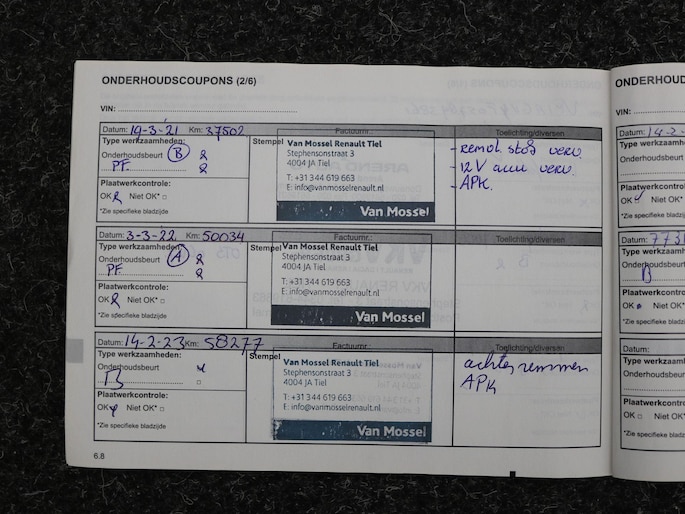 ONDERHOUDSCOUPONS (2/6)
VIN:
Datum: 19-3-'21 Km: 37502
Type werkzaamheden:
Onderhoudsbeurt B
PF.
Plaatwerkcontrole:
OK Niet OK*
*Zie specifieke bladzijde
Factuurnr.:
Stempel
Van Mossel Renault Tiel
Stephensonstraat 3
4004 JA Tiel
T: +31 344 619 663
E: info@vanmosselrenault.nl
Van Mossel
Toelichting/diversen
- remvl. stof verv.
- 12V accu verv.
- APK.
Datum: 3-3-22 Km: 50034
Type werkzaamheden:
Onderhoudsbeurt A
PF.
Plaatwerkcontrole:
OK Niet OK*
*Zie specifieke bladzijde
Factuurnr.:
Stempel
Van Mossel Renault Tiel
Stephensonstraat 3
4004 JA Tiel
T: +31 344 619 663
E: info@vanmosselrenault.nl
Van Mossel
Toelichting/diversen
Datum: 14-2-23 Km: 58277
Type werkzaamheden:
Onderhoudsbeurt
B
Plaatwerkcontrole:
OK Niet OK*
*Zie specifieke bladzijde
Factuurnr.:
Stempel
Van Mossel Renault Tiel
Stephensonstraat 3
4004 JA Tiel
T: +31 344 619 663
E: info@vanmosselrenault.nl
Van Mossel
Toelichting/diversen
achter remmen
APK
6.8
ONDERHOUD
VIN:
Datum: 14-2-
Type werkzaamhe
Onderhoudsbeurt
Plaatwerkcontrole
OK Niet OK*
*Zie specifieke bladz
Datum: 773
Type werkzaamhe
Onderhoudsbeurt
B
Plaatwerkcontrole
OK Niet OK*
*Zie specifieke bladz
Datum:
Type werkzaamhe
Onderhoudsbeurt
Plaatwerkcontrole
OK Niet OK*
*Zie specifieke bladz